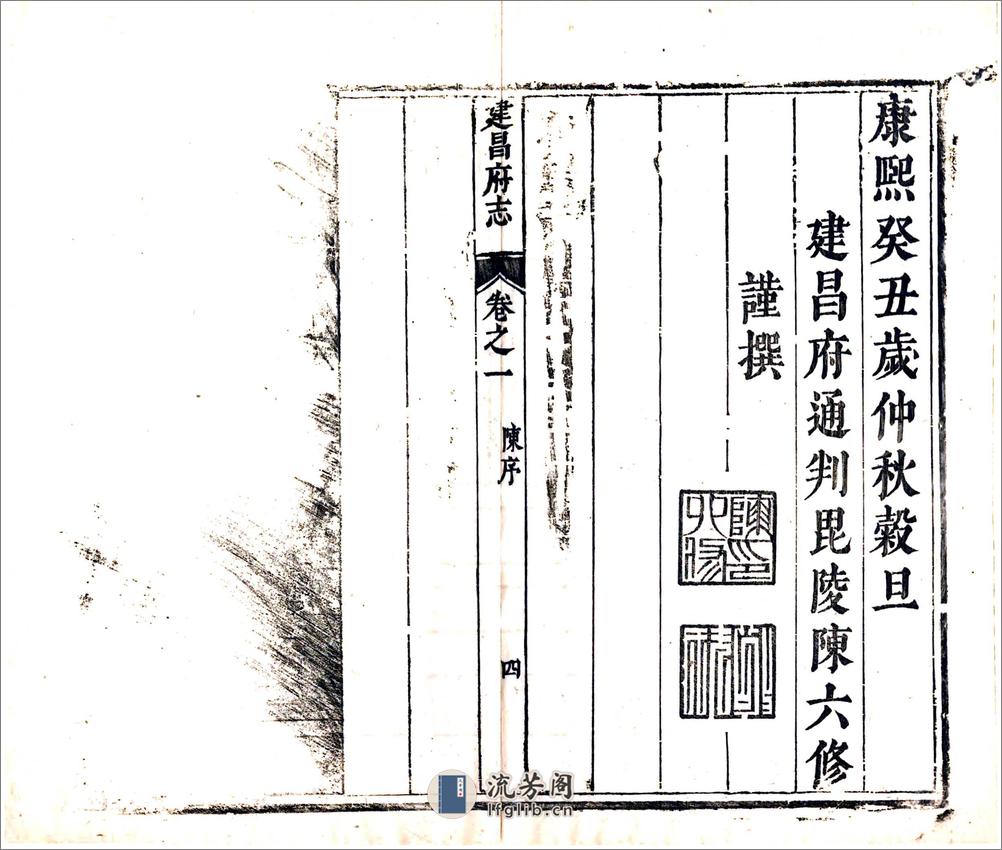 康熙癸丑歲仲秋穀旦
建昌府通判毘陵陳六修
謹撰
陳印六修
建昌府志
卷之一
陳序
四
流芳阁
lfglib.cn